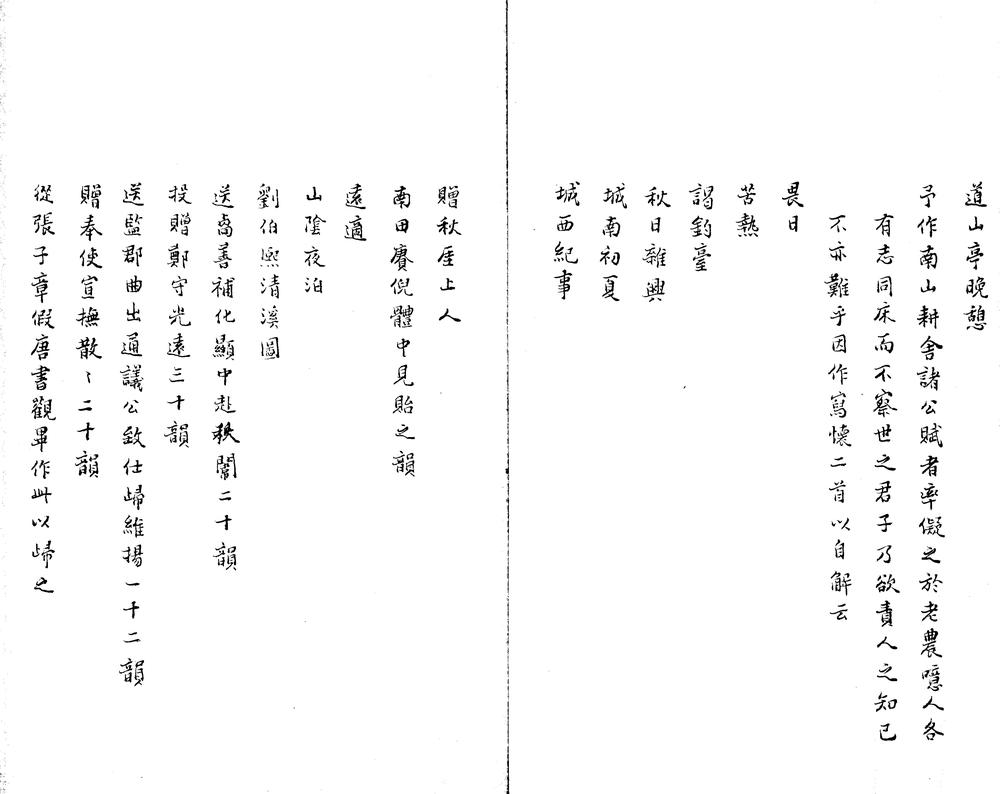 道山亭晚憩
予作南山耕舍諸公賦者率儗之於老農噫人各
有志同床而不察世之君子乃欲責人之知已
不亦難乎因作寫懷二首以自解云
畏日
苦熱
謁釣臺
秋日雜興
城南初夏
城西紀事
贈秋厓上人
南田賡倪體中見貽之韻
遠適
山陰夜泊
劉伯熙清溪圖
送卨善補化顯中赴秩闈二十韻
投贈鄭守光遠三十韻
送監郡曲出通議公致仕歸維揚一十二韻
贈奉使宣撫散〻二十韻
從張子章假唐書觀畢作此以歸之